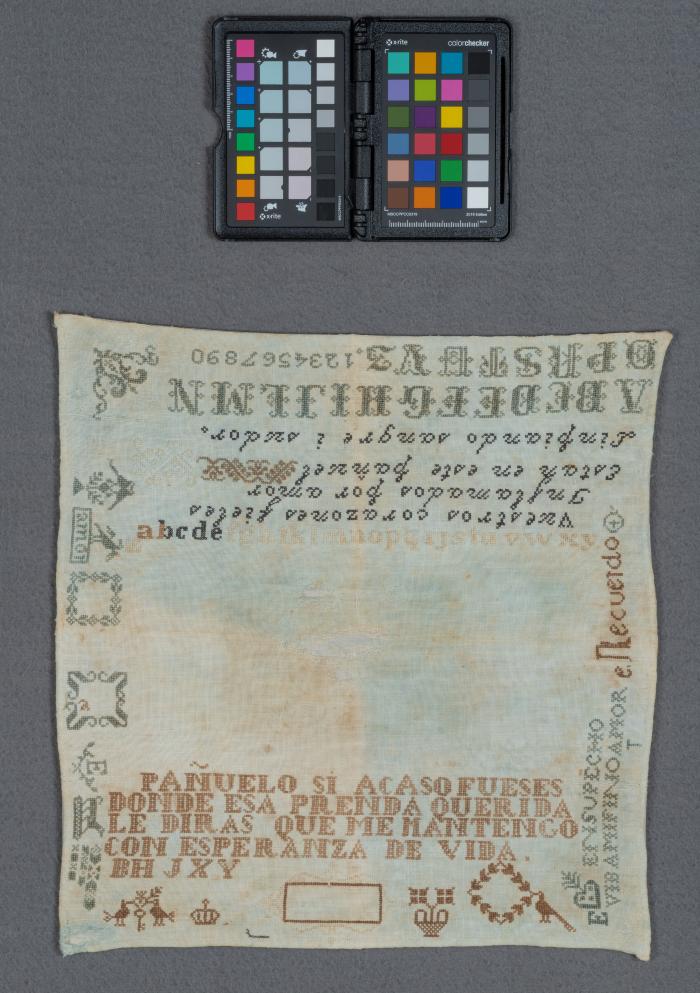 x-rite
colorchecker
x-rite
Vuestros corazones fieles
Inflamados por amor
Estah en este pañuel
Linpiando sangre i sudor.
ABCDEFGHIJLMN
.1234567890
abcde
amor
Recuerdo
EN SU PECHO
VIBA MI FINO AMOR
PAÑUELO SI ACASO FUESES
DONDE ESA PRENDA QUERIDA
LE DIRAS QUE ME MANTENGO
CON ESPERANZA DE VIDA.
BH JXY